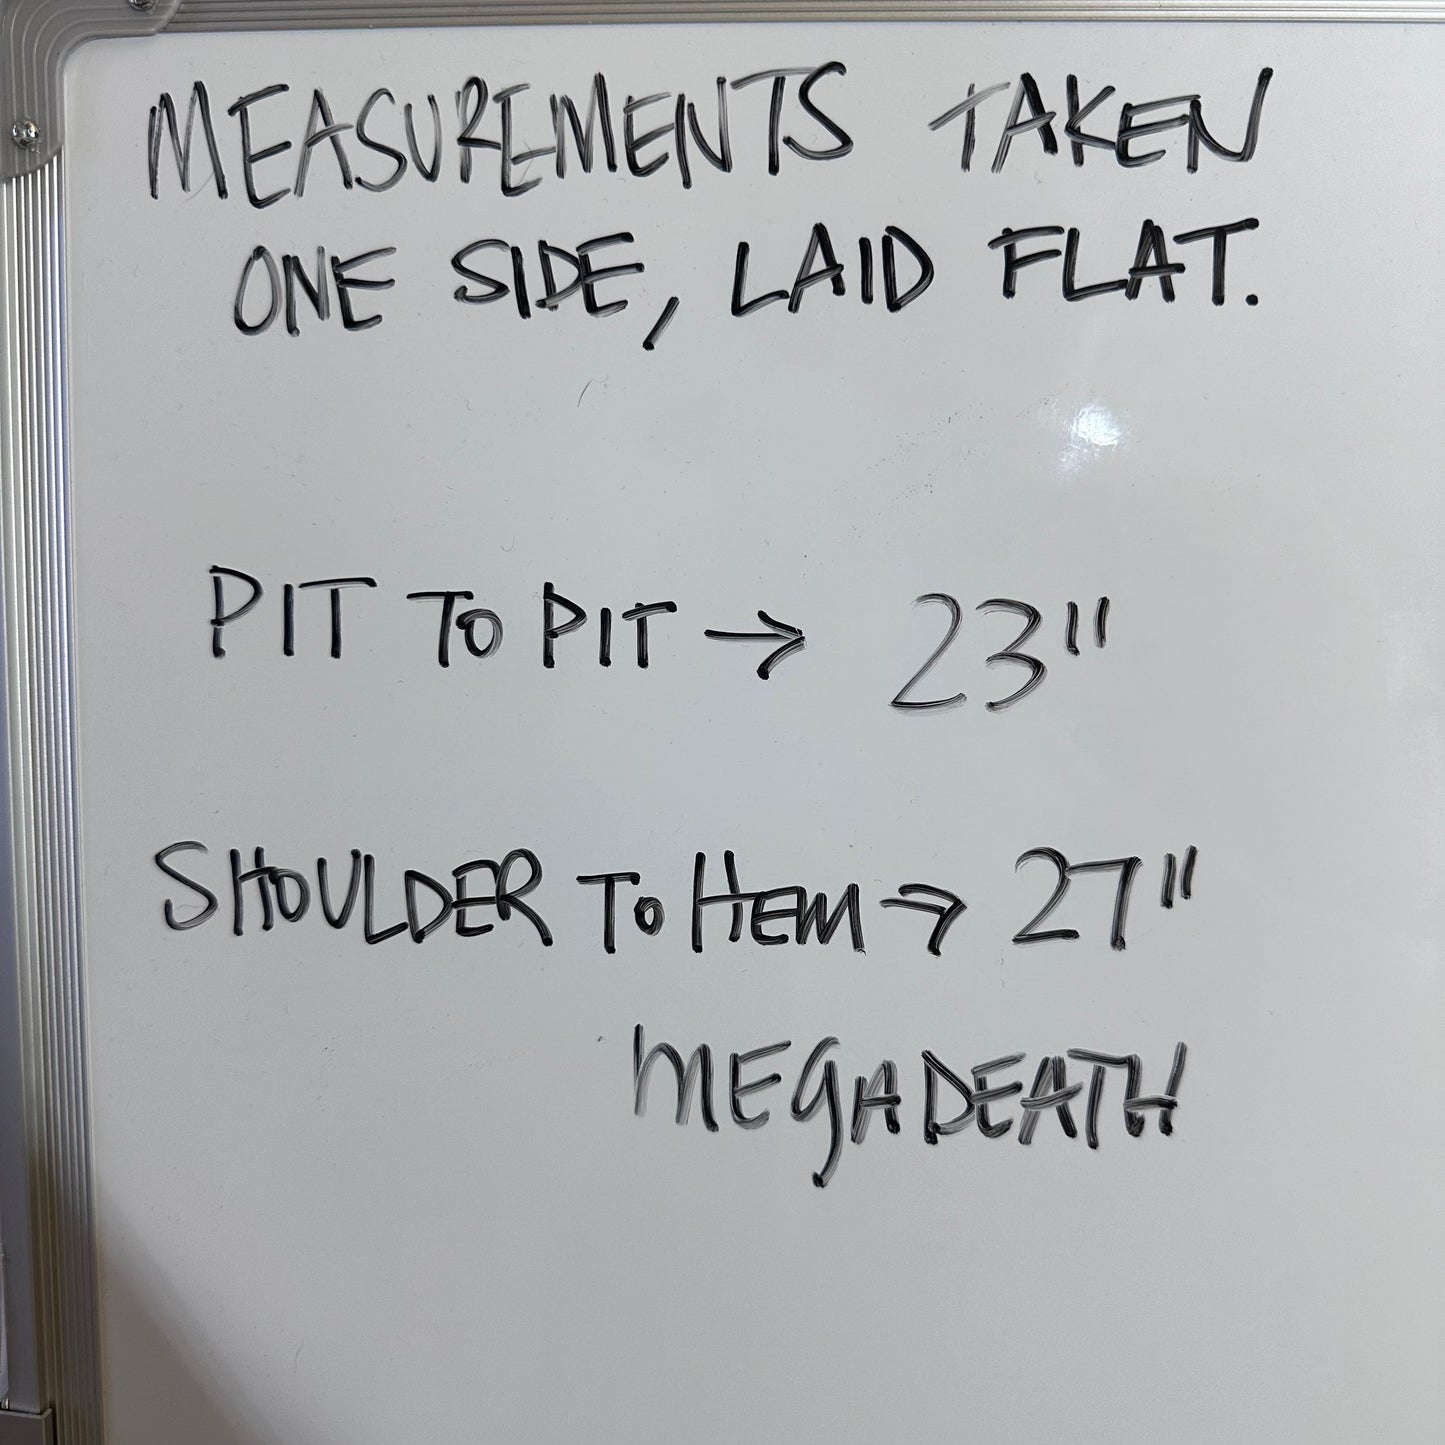 MEASUREMENTS TAKEN
ONE SIDE, LAID FLAT.
PIT TO PIT → 23"
SHOULDER TO HEM → 27"
MEGADEATH